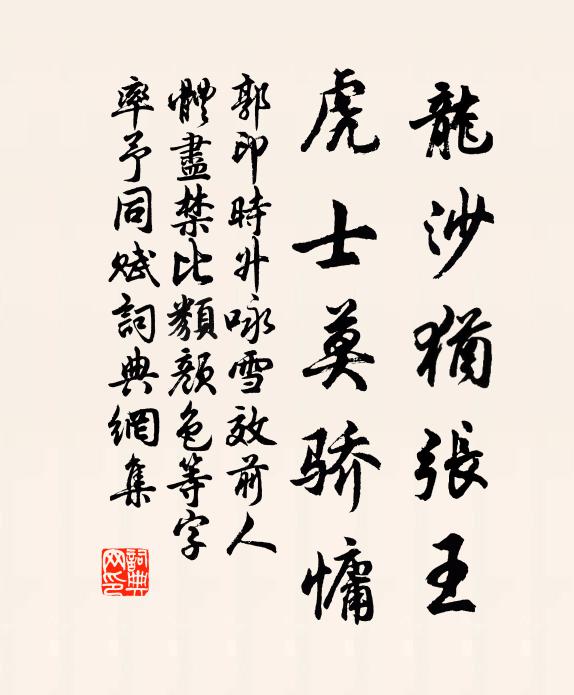 龍沙猶張王
虎士莫骄慵
郭印時升咏雪效前人
體盡禁比類顔色等字
率予同赋詞典網集
詞典网印